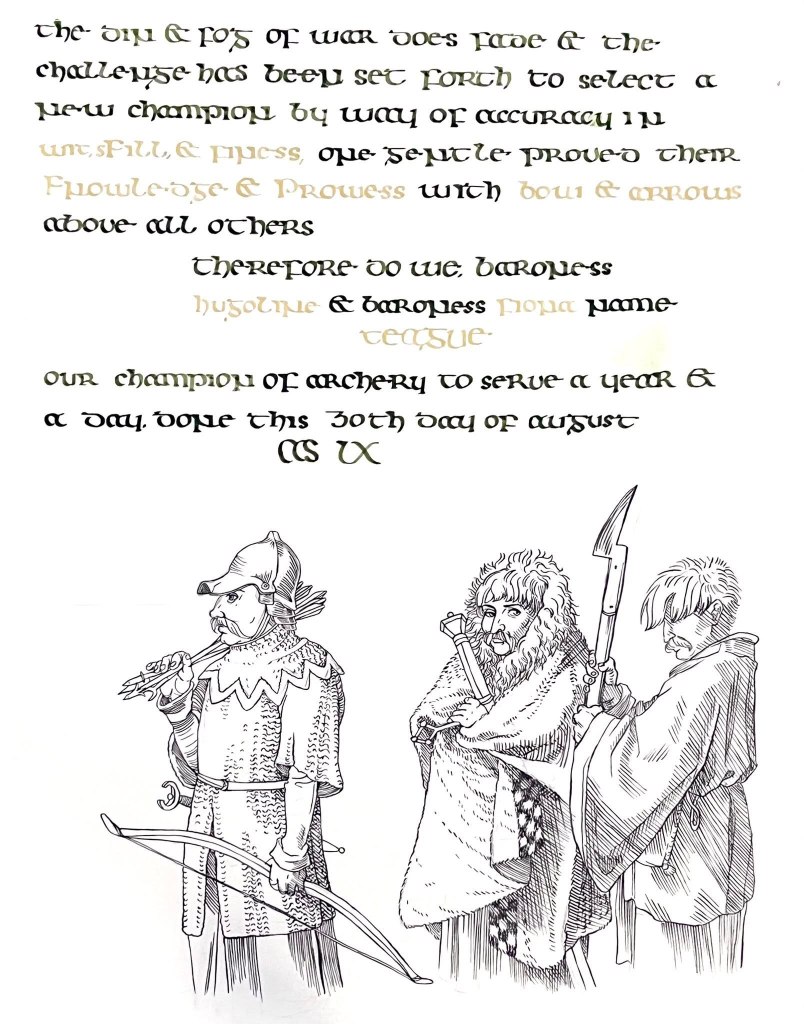 the din & fog of war does fade & the
challenge has been set forth to select a
new champion by way of accuracy in
wit, skill, & finess, one gentle proved their
Knowledge & Prowess with bow & arrows
above all others
therefore do we, baroness
hugoline & baroness fiona name
teague
our champion of archery to serve a year &
a day. done this 30th day of august
AS LX